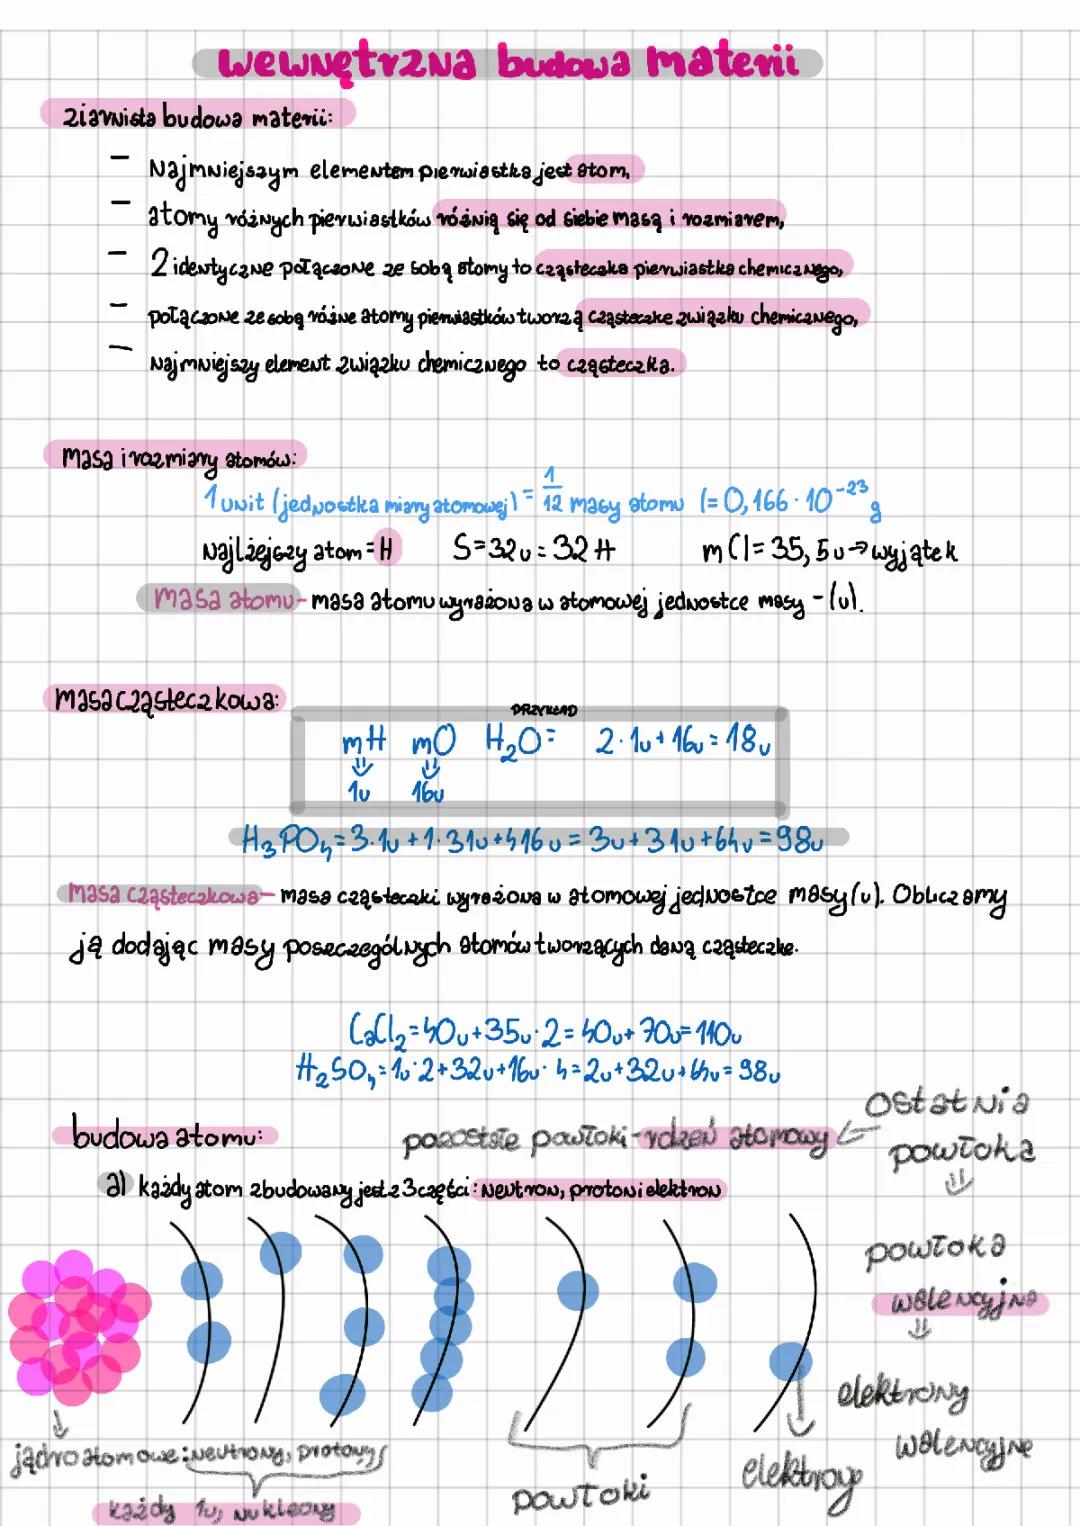 wewnętrzna budowa materii
ziarnista budowa materii:
– Najmniejszym elementem pierwiastka jest atom,
– atomy różnych pierwiastków różnią się od siebie masą i rozmiarem,
– 2 identyczne połączone ze sobą atomy to cząsteczka pierwiastka chemicznego,
– połączone ze sobą różne atomy pierwiastków tworzą cząsteczke związku chemicznego,
– Najmniejszy element związku chemicznego to cząsteczka.
masa i rozmiary atomów:
1 unit (jednostka miary atomowej) = 1/12 masy atomu (= 0,166 · 10⁻²³ g
Najlżejszy atom = H S = 32u = 32 H mCl = 35,5u → wyjątek
masa atomu - masa atomu wyrażona w atomowej jednostce masy - (u).
masa cząsteczkowa:
PRZYKŁAD
mH mO H₂O = 2 · 1u + 16u = 18u
⇓ ⇓
1u 16u
H₃PO₄ = 3·1u + 1·31u + 4 16u = 3u + 31u + 64u = 98u
masa cząsteczkowa - masa cząsteczki wyrażona w atomowej jednostce masy (u). Obliczamy
ją dodając masy poszczególnych atomów tworzących daną cząsteczke.
CaCl₂ = 40u + 35u · 2 = 40u + 70u = 110u
H₂SO₄ = 1u · 2 + 32u + 16u · 4 = 2u + 32u + 64u = 98u
budowa atomu:
pozostałe powłoki - rdzeń atomowy ⇐ ostatnia
powłoka
⇓
a) każdy atom zbudowany jest z 3 części: neutron, proton i elektron
powłoka
walencyjna
⇓
elektrony
walencyjne
jądro atomowe: neutrony, protony
każdy 1u, nukleony
powłoki
elektrony